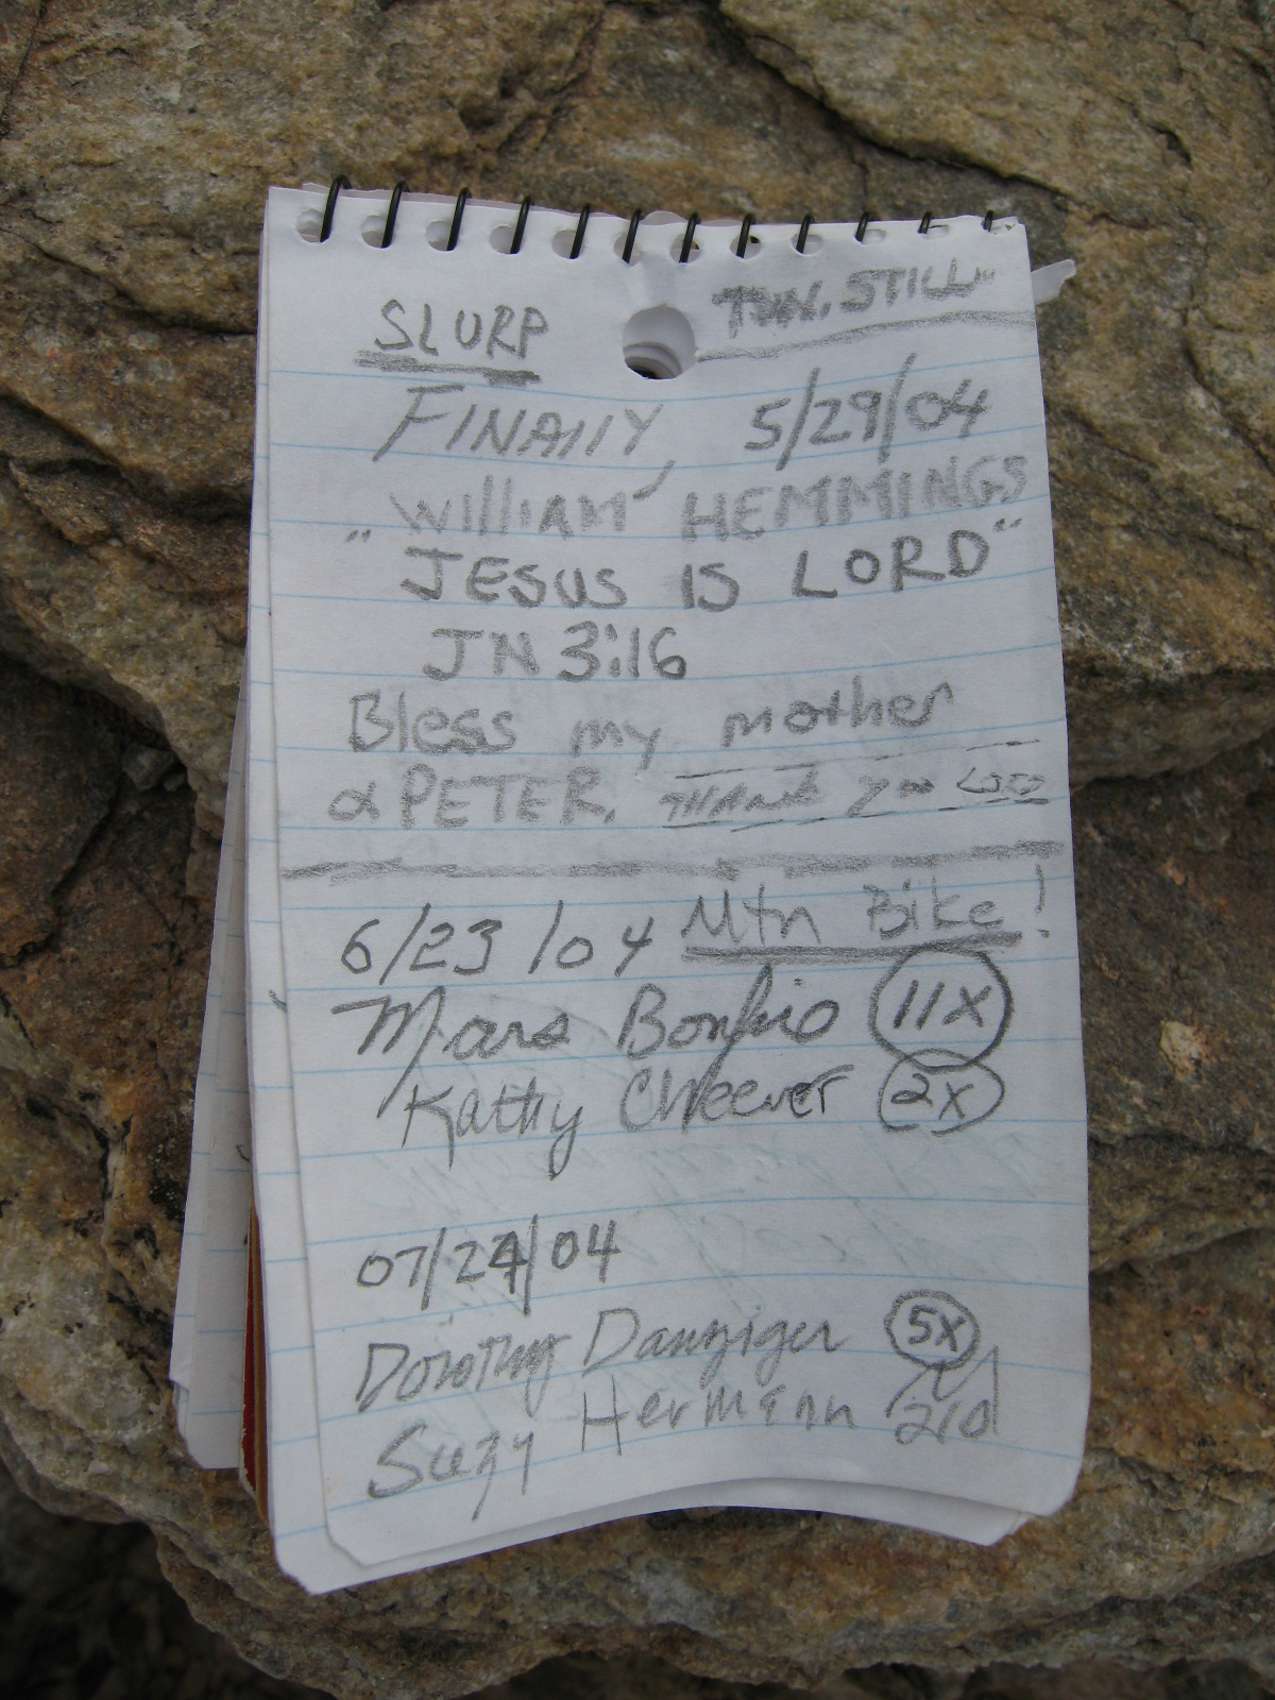 SLURP STILL
FINAllY, 5/29/04
WIllIAM HEMMINGS
"JESUS IS LORD"
JN 3:16
Bless my mother
& PETER. THANK YOU LORD
6/23/04 Mtn Bike!
Mars Bonfire 11X
Kathy Cheever 2X
07/24/04
Dorothy Danziger 5X
Suzy Hermann